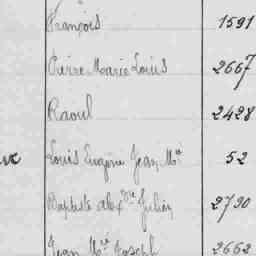 François 1591
Pierre Marie Louis 2667
Raoul 2428
Louis Eugène Jean Mie 52
Baptiste Alexdre Julien 2790
Jean Mie Joseph 2662